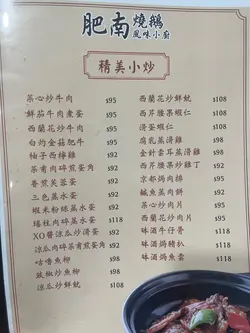 肥南燒鵝
風味小廚
精美小炒
菜心炒牛肉 $95
鮮茄牛肉煮蛋 $95
西蘭花炒牛肉 $95
白灼金菇肥牛 $95
柚子西檸雞 $92
菜甫肉碎煎蛋角 $92
香煎芙蓉蛋 $92
三色蒸水蛋 $92
蝦米粉絲蒸水蛋 $92
瑤柱肉碎蒸水蛋 $118
XO醬涼瓜炒滑蛋 $92
涼瓜肉碎菜甫煎蛋角 $92
咕嚕魚柳 $98
豉椒炒魚柳 $98
涼瓜炒鮮魷 $108
西蘭花炒鮮魷 $108
西芹腰果蝦仁 $108
滑蛋蝦仁 $108
腐乳蒸滑雞 $98
金針雲耳蒸滑雞 $98
西芹腰果炒雞丁 $92
京都焗肉排 $95
鹹魚蒸肉餅 $95
菜心炒肉片 $95
西蘭花炒肉片 $95
砵酒牛仔骨 $118
砵酒焗豬扒 $118
砵酒焗魚雲 $118